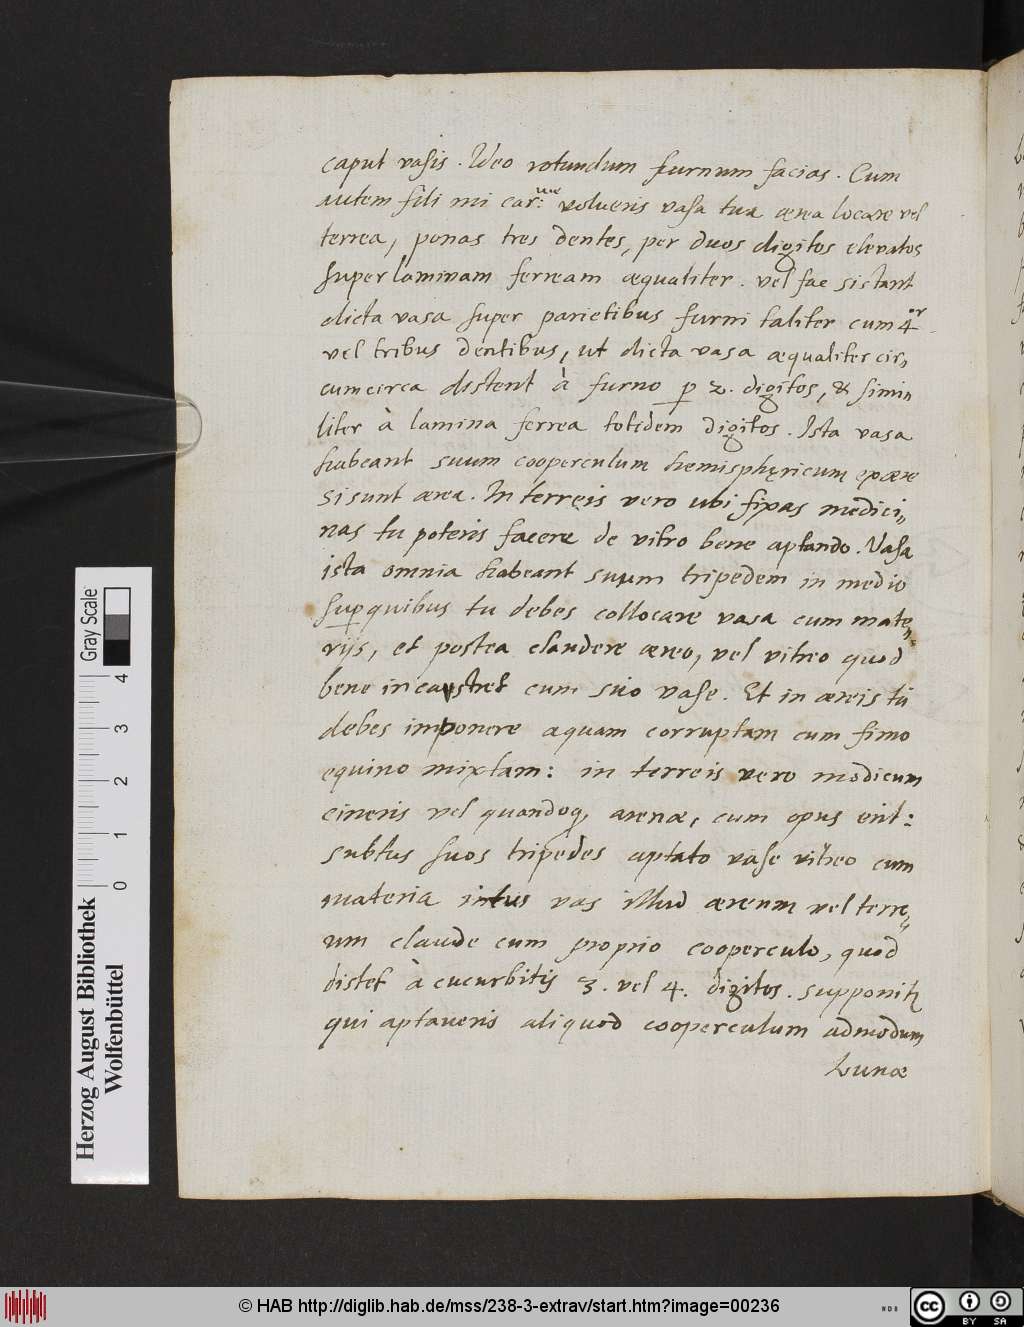 caput vasis. Ideo rotundum furnum facias. Cum
autem fili mi car:me volueris vasa tua ærea locare vel
terrea, ponas tres dentes, per duos digitos elevatos
super laminam ferream æqualiter. vel fac sistant
dicta vasa super parietibus furni taliter cum 4or
vel tribus dentibus, ut dicta vasa æqualiter cir„
cumcirca distent à furno p 2. digitos, & simi„
liter à lamina ferrea totidem digitos. Ista vasa
habeant suum cooperculum hemisphęricum ex ære
si sunt ærea. In terreis vero ubi fixas medici„
nas tu poteris facere de vitro bene aptando. Vasa
ista omnia habeant suum tripedem in medio
sup quibus tu debes collocare vasa cum mate„
rijs, et postea claudere æreo, vel vitreo quod
bene incastret cum suo vase. Et in æreis tu
debes imponere aquam corruptam cum fimo
equino mixtam: in terreis vero modicum
cineris vel quandoq, arenæ, cum opus erit:
subtus suos tripedes aptato vase vitreo cum
materia intus vas illud æreum vel terre„
um claude cum proprio cooperculo, quod
distet à cucurbitis 3. vel 4. digitos. supponit
qui aptaveris aliquod cooperculum admodum
Lunæ
Gray Scale
0 1 2 3 4
Herzog August Bibliothek
Wolfenbüttel
© HAB http://diglib.hab.de/mss/238-3-extrav/start.htm?image=00236
NDB
cc BY SA